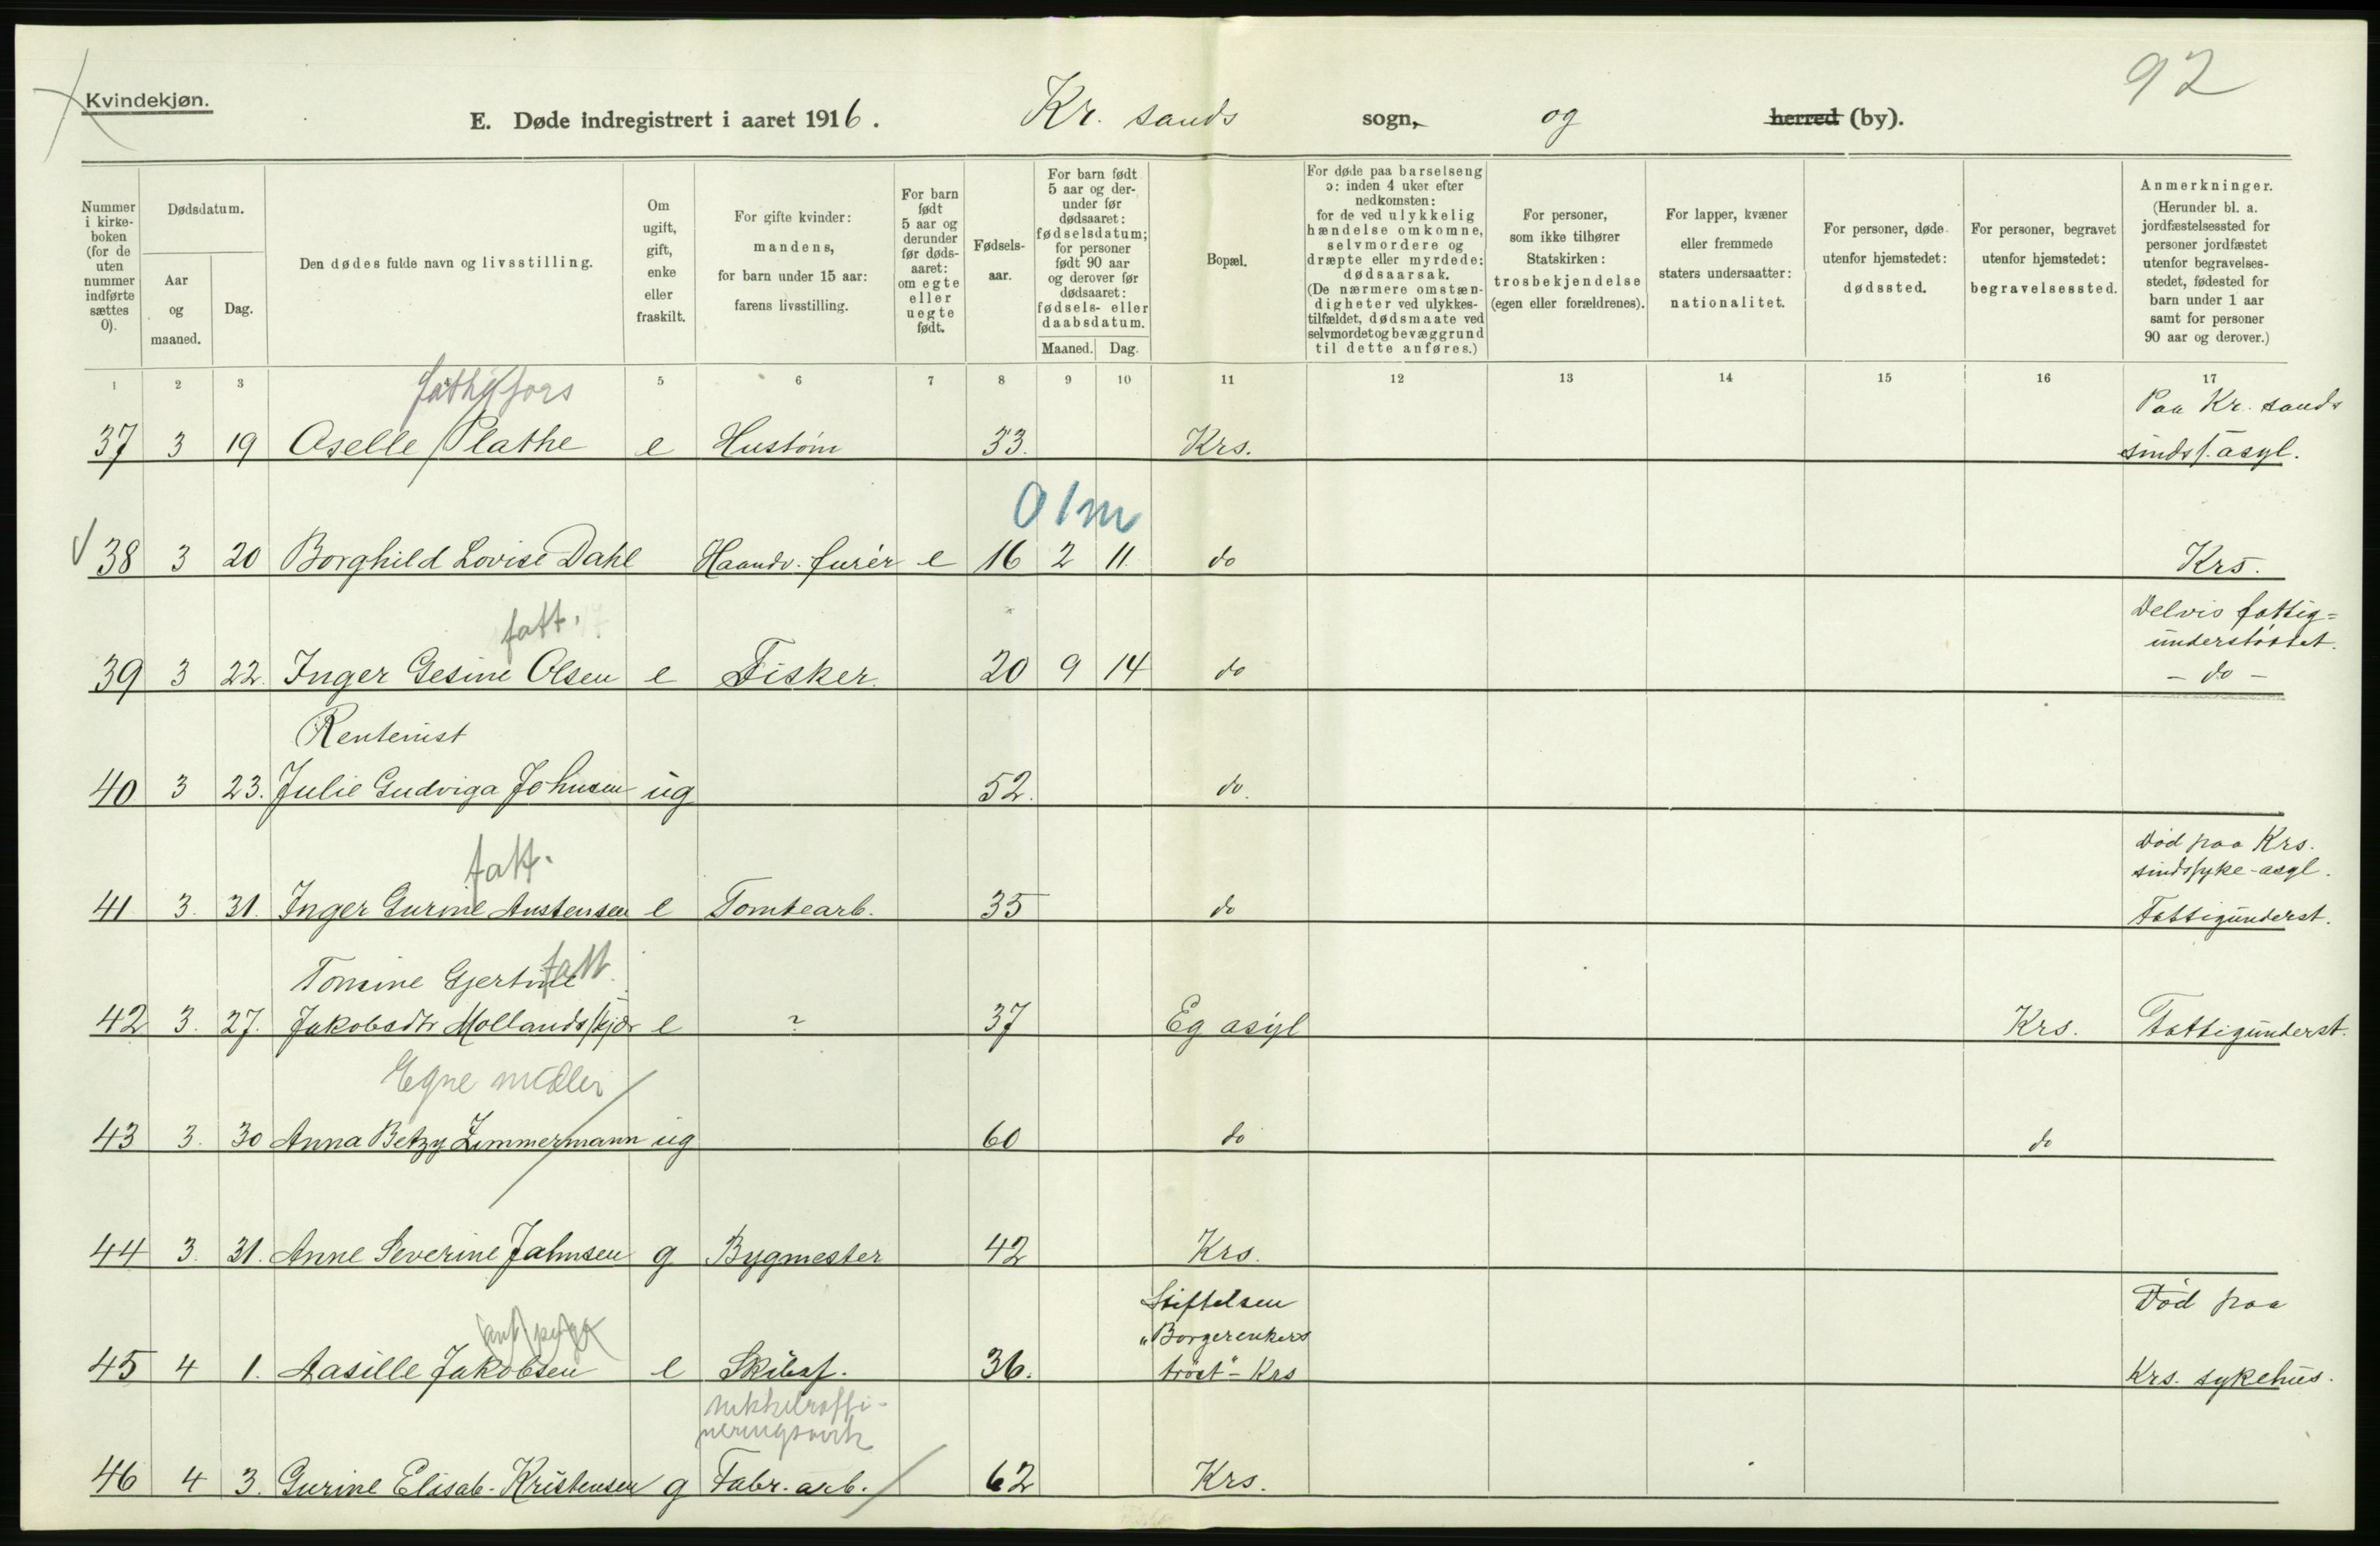 92
Kvindekjøn.
E. Døde indregistrert i aaret 1916. Kr. sands sogn, og herred (by).
Nummer i kirke-boken (for de uten nummer indførte sættes 0).
Dødsdatum.
Aar og maaned.
Dag.
Den dødes fulde navn og livsstilling.
Om ugift, gift, enke eller fraskilt.
For gifte kvinder: mandens, for barn under 15 aar: farens livsstilling.
For barn født 5 aar og derunder før døds-aaret: om egte eller uegte født.
Fødsels-aar.
For barn født 5 aar og der-under før dødsaaret: fødselsdatum; for personer født 90 aar og derover før dødsaaret: fødsels- eller daabsdatum.
Maaned. Dag.
Bopæl.
For døde paa barselseng ɔ: inden 4 uker efter nedkomsten: for de ved ulykkelig hændelse omkomne, selvmordere og dræpte eller myrdede: dødsaarsak. (De nærmere omstæn-digheter ved ulykkes-tilfældet, dødsmaate ved selvmordet og bevæggrund til dette anføres.)
For personer, som ikke tilhører Statskirken: trosbekjendelse (egen eller forældrenes).
For lapper, kvæner eller fremmede staters undersaatter: nationalitet.
For personer, døde utenfor hjemstedet: dødssted.
For personer, begravet utenfor hjemstedet: begravelsessted.
Anmerkninger. (Herunder bl. a. jordfæstelsessted for personer jordfæstet utenfor begravelses-stedet, fødested for barn under 1 aar samt for personer 90 aar og derover.)
1 2 3 5 6 7 8 9 10 11 12 13 14 15 16 17
Paa Kr. sands
37 3 19 Oselle Plathe e Hustøm 33. Krs. sindss. asyl.
01m
38 3 20 Borghild Lovise Dahl Haandv. furér e 16 2 11. do Krs.
fatt. Delvis fattig=
understøttet.
39 3 22. Inger Gesine Olsen e Fisker. 20 9 14 do - do -
Rentenist
40 3 23. Julie Gudviga Johnsen ug 52. do.
fatt. Død paa Krs.
sindssyke-asyl.
41 3. 31. Inger Gurine Austensen e Tomtearb. 35 do Fattigunderst.
Tomine Gjertine fatt
42 3. 27. Jakobsdtr Mollandskjær e ? 37 Eg asyl Krs. Fattigunderst.
Egne midler
43 3. 30 Anna Betzy Zimmermann ug 60 do do
44 3. 31. Anne Severine Jahnsen g Bygmester 42 Krs.
Stiftelsen Død paa
"Borgerenkers
45 4 1. Aasille Jakobsen e Skibsf. 36. trøst" - Krs Krs. sykehus.
nikkelraffi-
neringsverk
46 4 3. Gurine Elisab. Kristensen g Fabr. arb. 62 Krs.